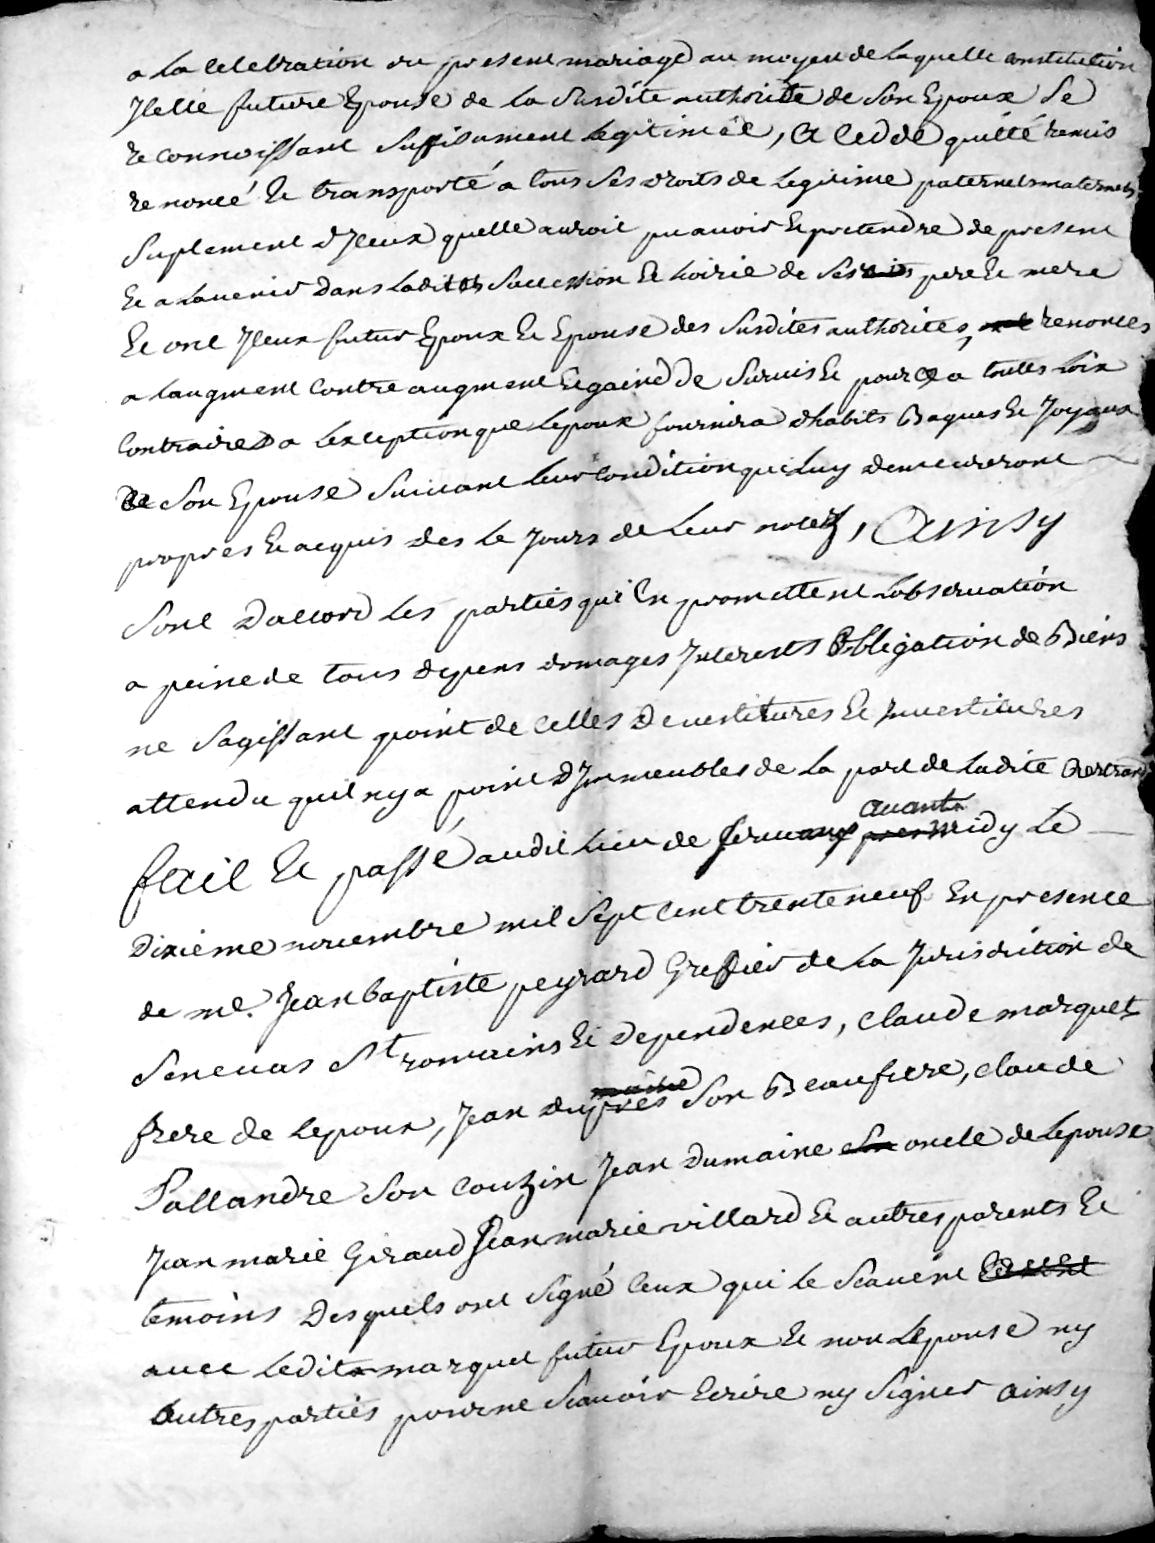 a La Celebration du present mariage au moyen de Laquelle constitution
Jcelle future Epouse de La Susdite authorite de Son Epoux Se
reconnoissant Suffisament Legitimée, A Ceddé quitté remis
renoncé Et transporté a tous Ses droits de Legitime paternels maternels
Suplement d'Jceux quelle auroit pu avoir Et pretendre de present
Et a Lavenir dans Ladite Succession Et hoirie de Ses pere Et mere
Et ont Jceux futur Epoux Et Epouse des Susdites authorités, renoncés
a Laugment Contre augment Et gaind de Survis Et pource a toutes Loix
Contraires a Lexception que Lepoux fournira d'habits Bagues Et Joyaux
Son Epouse Suivant Leur Condition qui Luy demeureront
propres Et acquis des Le Jours de Leur nocez, Ainsy
Sont Daccord Les parties qui En promettent Lobservation
a peine de tous depens domages Jnterests Obligation de Biens
ne Sagissant point de Celles Devestitures Et Jnvestitures
attendu quil ny a point d'Jmmeubles de La part de Ladite
fait Et passé audit Lieu de avant midy Le
Dixième novembre mil Sept Cent trente neuf En presence
de me. Jean baptiste peyrard Greffier de La Jurisdiction de
Senevas St romains Et dependences, Claude marquet
frere de Lepoux, Jean Son Beaufrere, Claude
Pallandre Son Couzin Jean dumaine oncle de Lepouse
Jean marie Giraud Jean marie villard Et autres parents Et
temoins Desquels ont Signé Ceux qui Le Scavent
avec Ledit marquet futur Epoux Et non Lepouse ny
Autres parties pour ne Scavoir Ecrire ny Signer ainsy